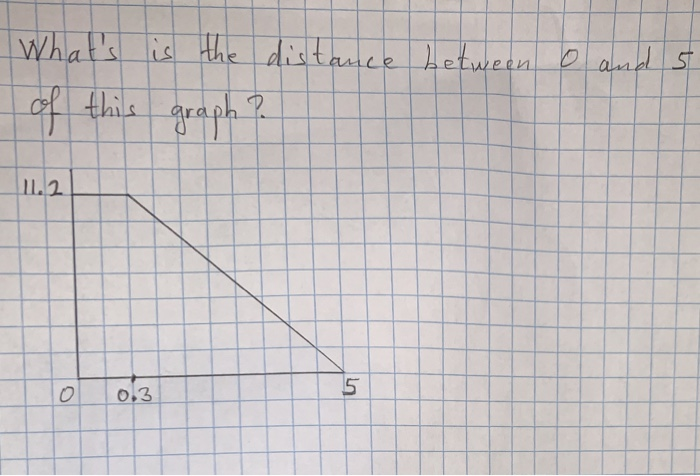 What's is the distance between 0 and 5
of this graph?
11.2
0 0.3 5